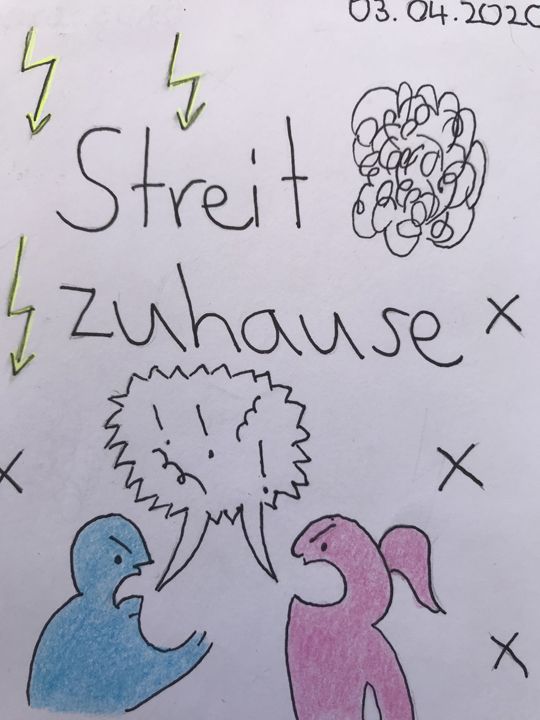 03.04.2020
Streit
zuhause